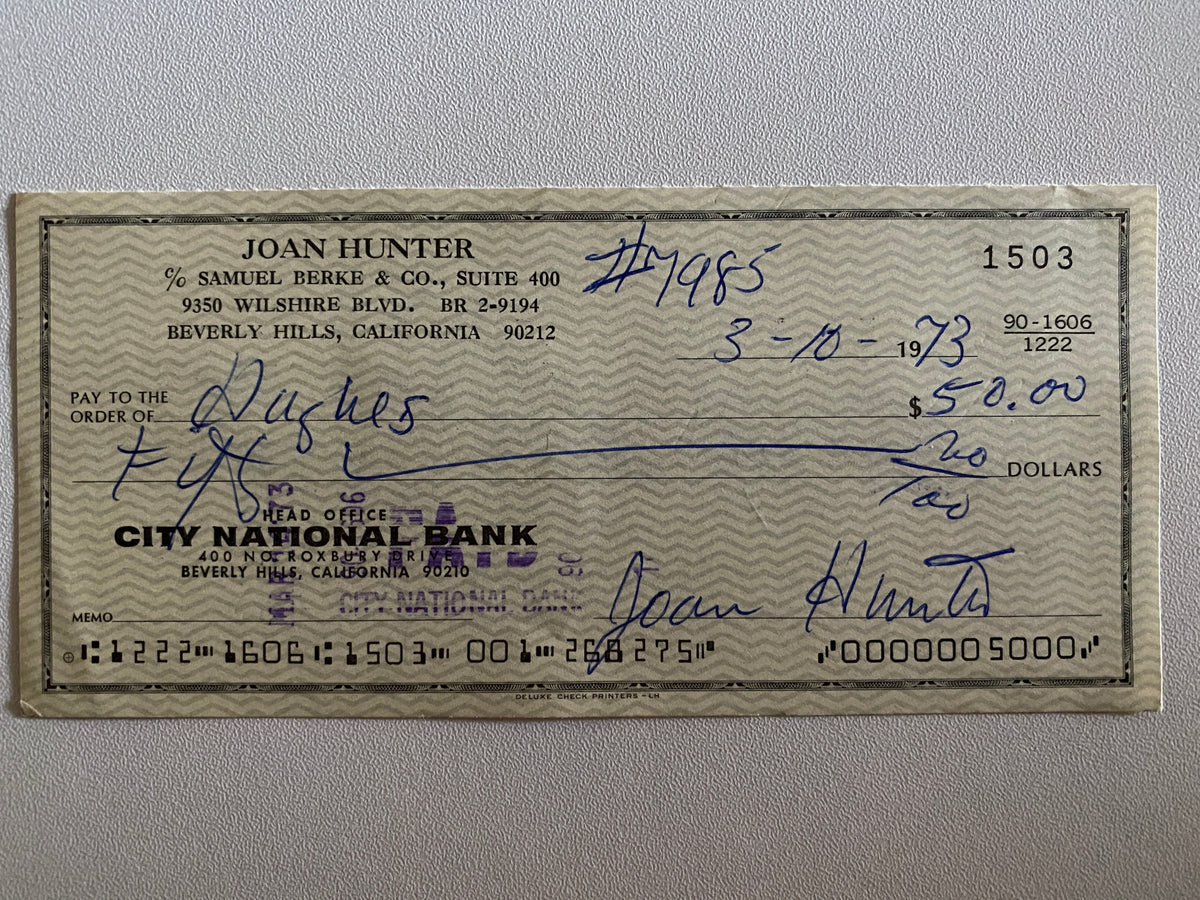 JOAN HUNTER
℅ SAMUEL BERKE & CO., SUITE 400
9350 WILSHIRE BLVD. BR 2-9194
BEVERLY HILLS, CALIFORNIA 90212
#7985
1503
3-10-1973
90-1606
1222
PAY TO THE
ORDER OF Hughes $50.00
Fifty no/100 DOLLARS
HEAD OFFICE
CITY NATIONAL BANK
400 NO. ROXBURY DRIVE
BEVERLY HILLS, CALIFORNIA 90210
PAID
CITY NATIONAL BANK
MEMO
Joan Hunter
⑆1222⑉1606⑆1503⑉ 001⑉268275⑈ ⑇0000005000⑇
DELUXE CHECK PRINTERS - LH